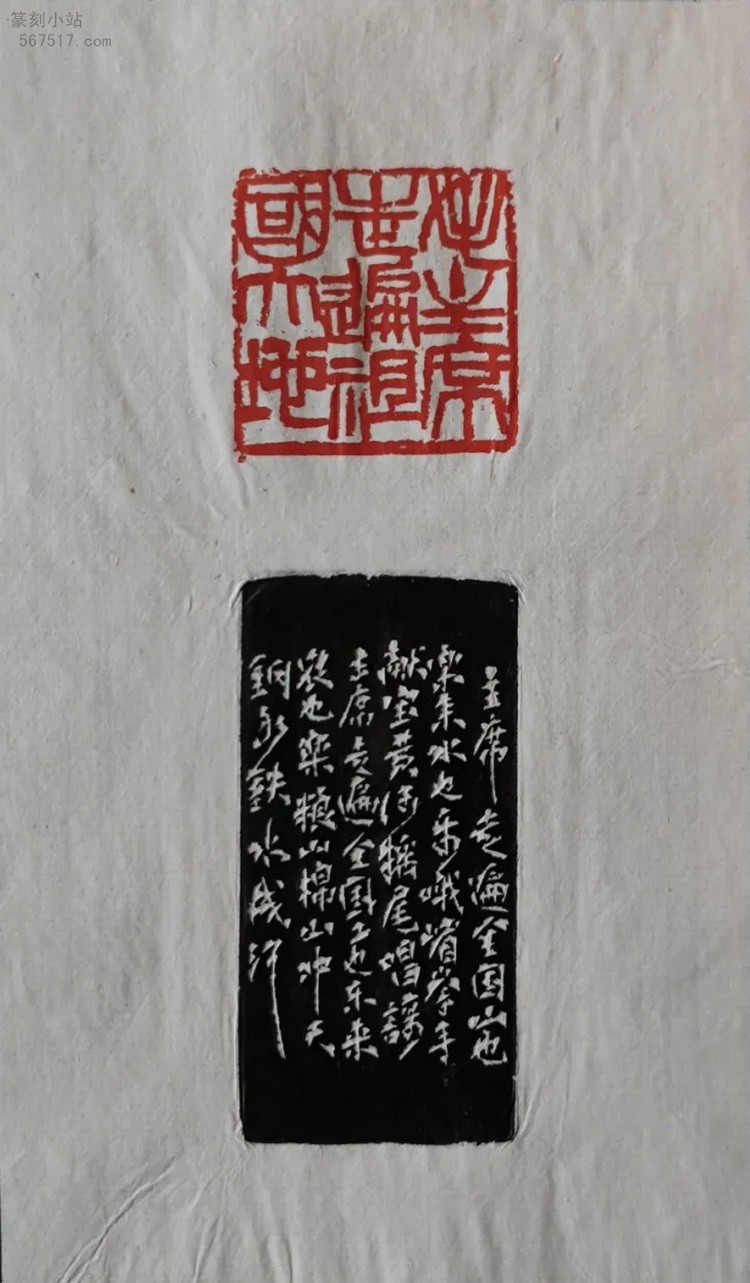 篆刻小站
567517.com
毛主席
走遍祖
國大地
主席走遍全国山也
乐来水也乐峨嵋举手
献宝黄河摇尾唱謌
主席走遍全國工也乐来
农也乐粮山棉山冲天
鋼水鉄水成河